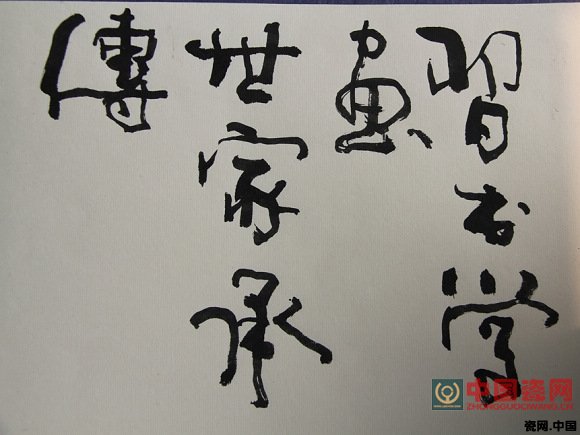 習书学
畫
世家承
傳
中国瓷网
ZHONGGUOCIWANG.CN
瓷网.中国